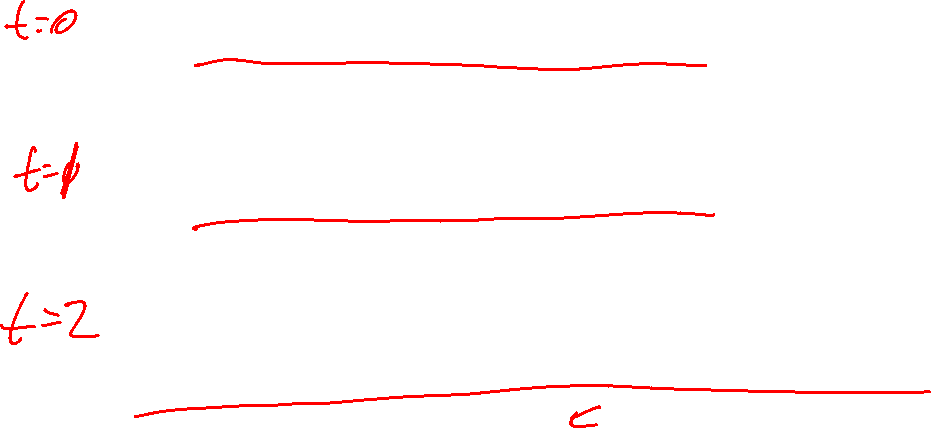 t=0
t=1
t=2
c